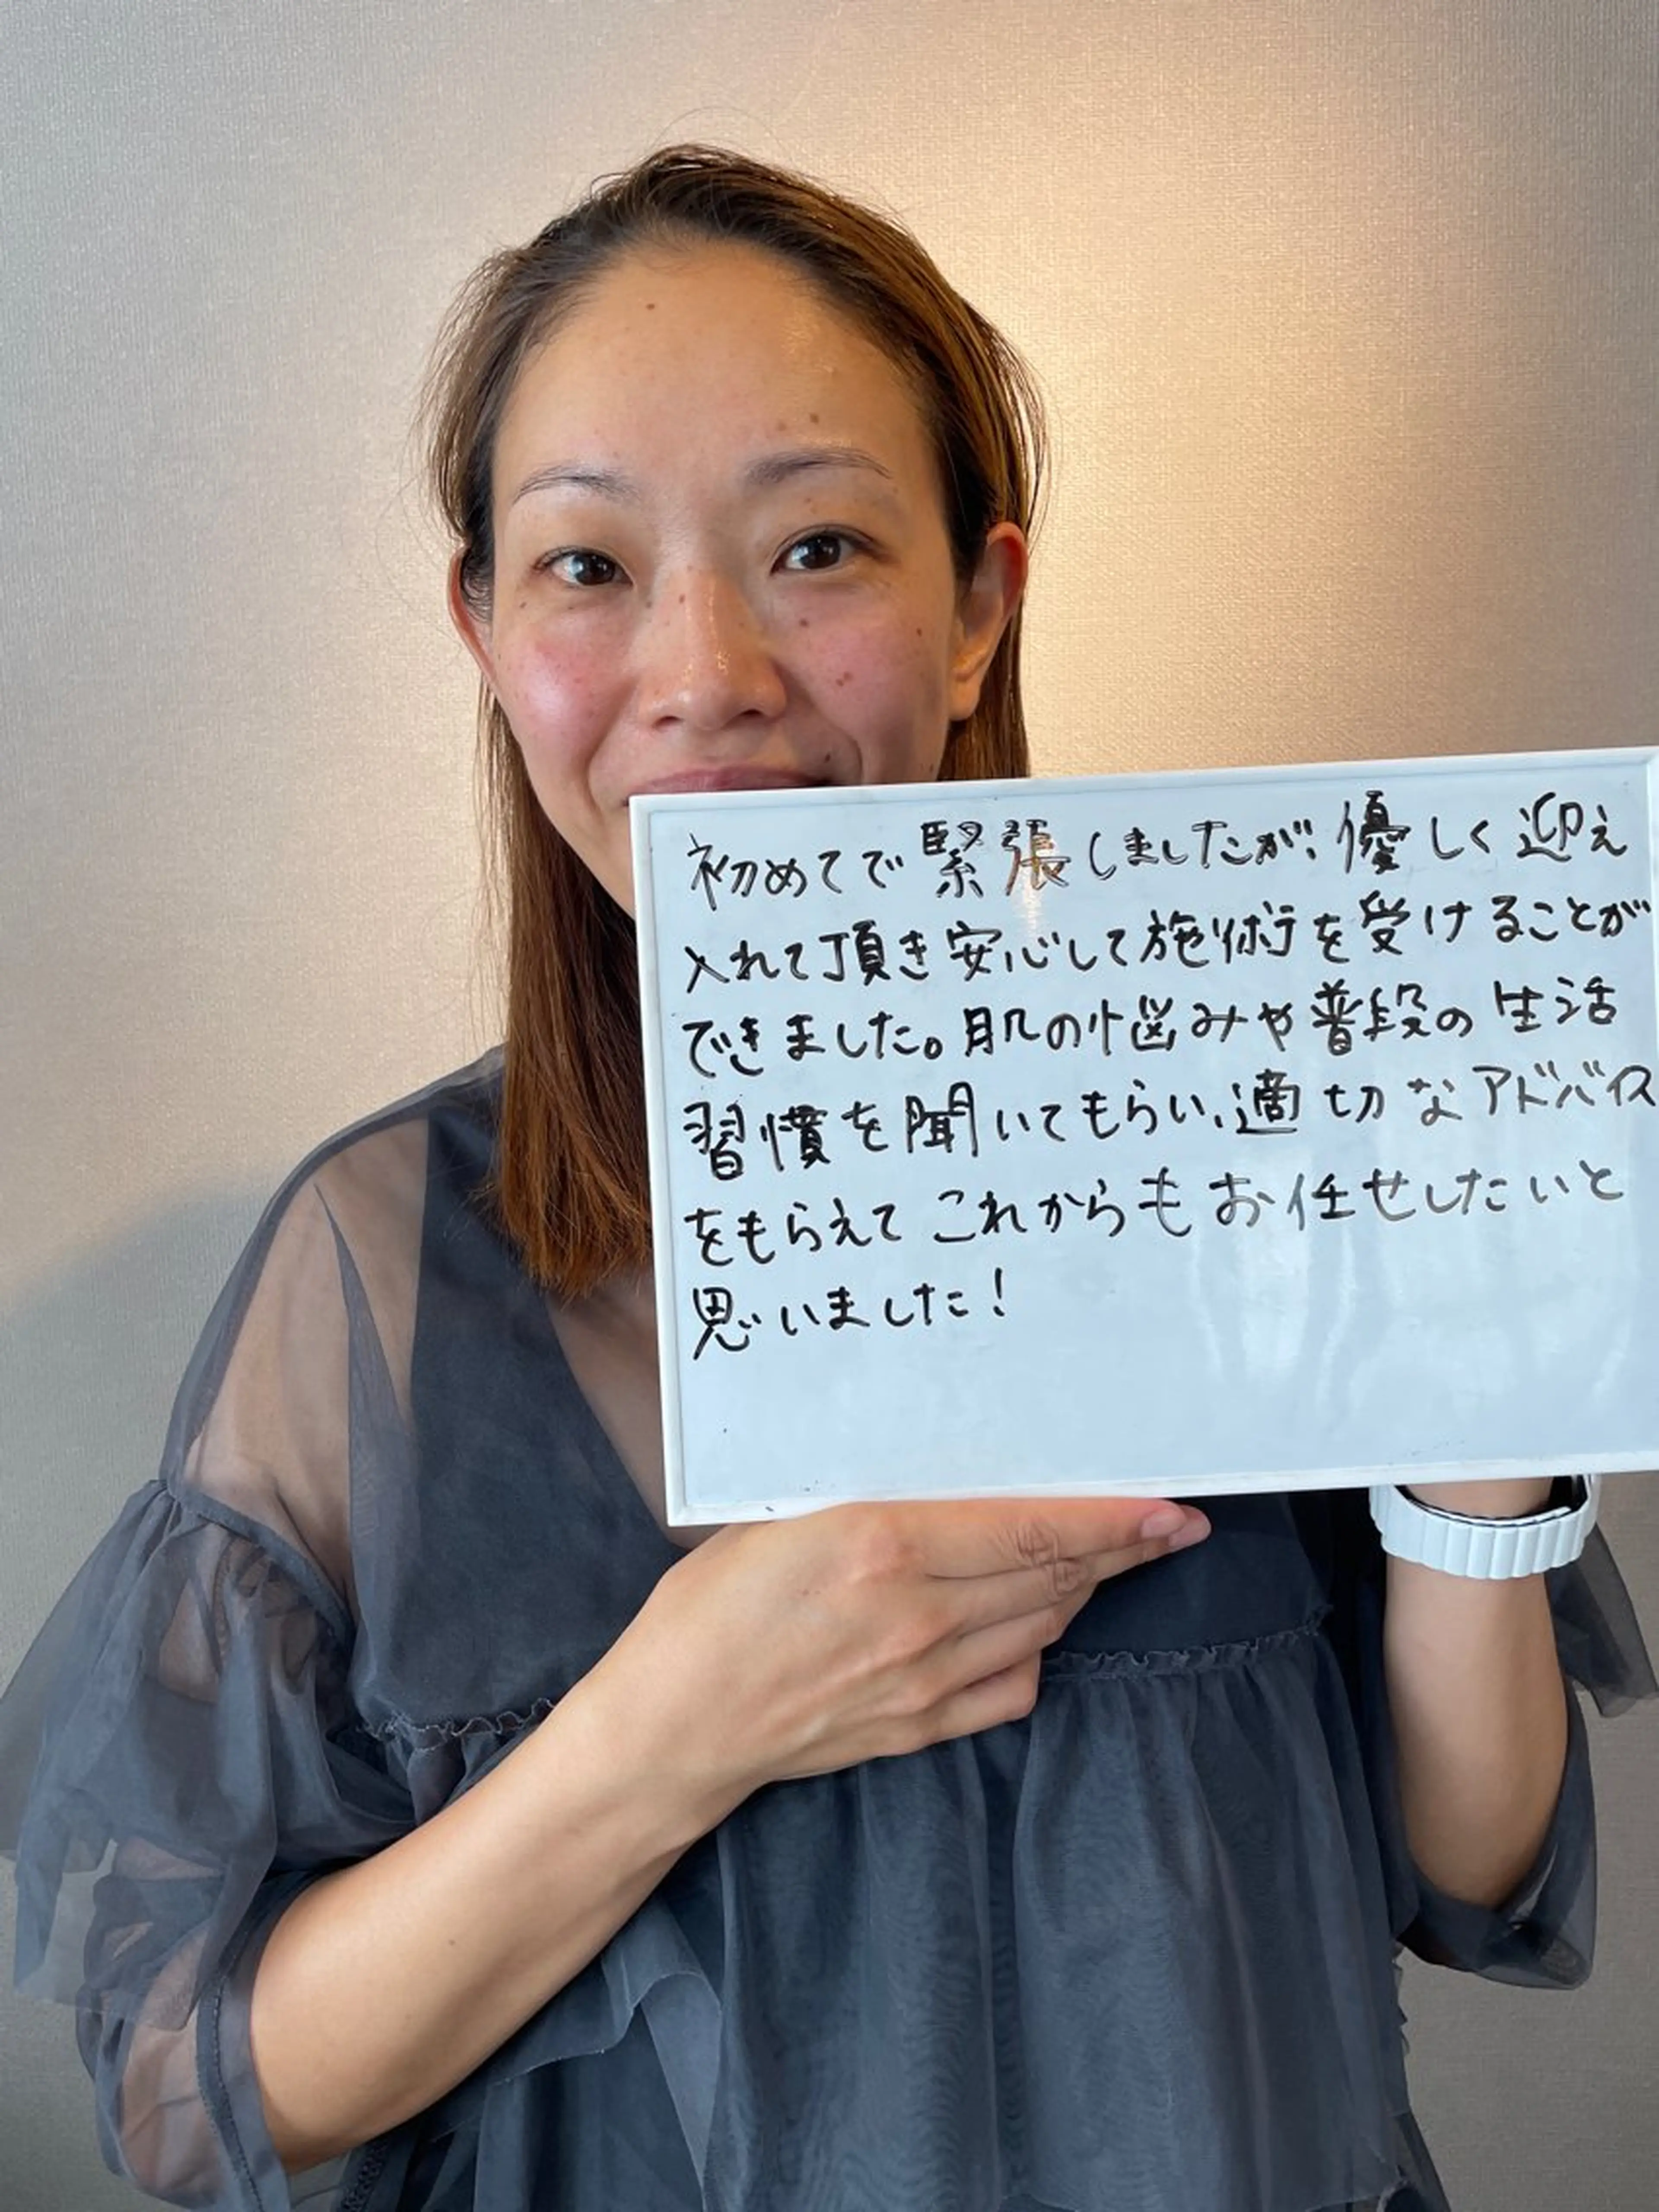 初めてで緊張しましたが、優しく迎え
入れて頂き安心して施術を受けることが
できました。肌の悩みや普段の生活
習慣を聞いてもらい、適切なアドバイス
をもらえてこれからもお任せしたいと
思いました!